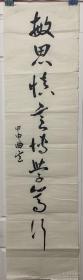 敏思慎言博学笃行
甲申